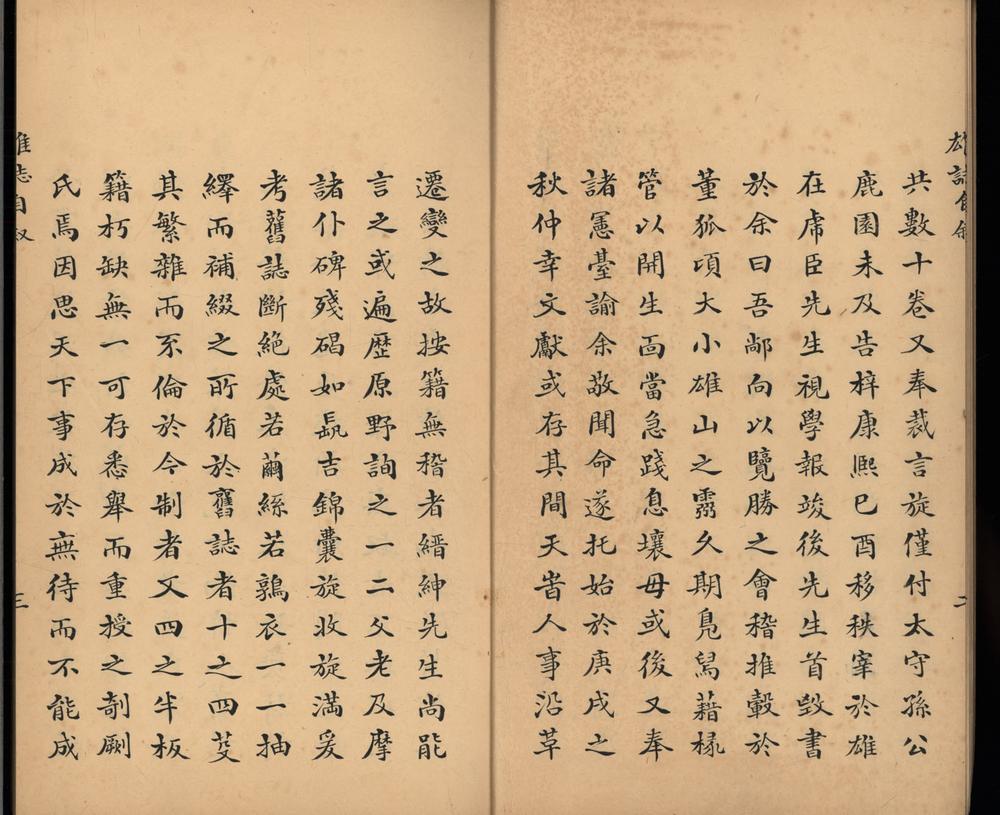 雄誌自叙
共數十卷又奉裁言旋僅付太守孫公
鹿園未及告梓康熙己酉移秩宰於雄
在虜臣先生視學報竣後先生首毀書
於余曰吾鄗向以覽勝之會稽推轂於
董狐項大小雄山之靈久期鳧舄藉椽
管以開生面當急踐息壤毋或後又奉
諸憲臺諭余敬聞命遂托始於庚戌之
秋仲幸文獻或存其間天眚人事沿革
二
遷變之故按籍無稽者縉紳先生尚能
言之或遍歷原野詢之一二父老及摩
諸仆碑殘碣如長吉錦囊旋收旋滿爰
考舊誌斷絕處若繭絲若鶉衣一一抽
繹而補綴之所循於舊誌者十之四芟
其繁雜而不倫於今制者又四之半板
籍朽缺無一可存悉舉而重授之剞劂
氏焉因思天下事成於無待而不能成
雄志自叙
三